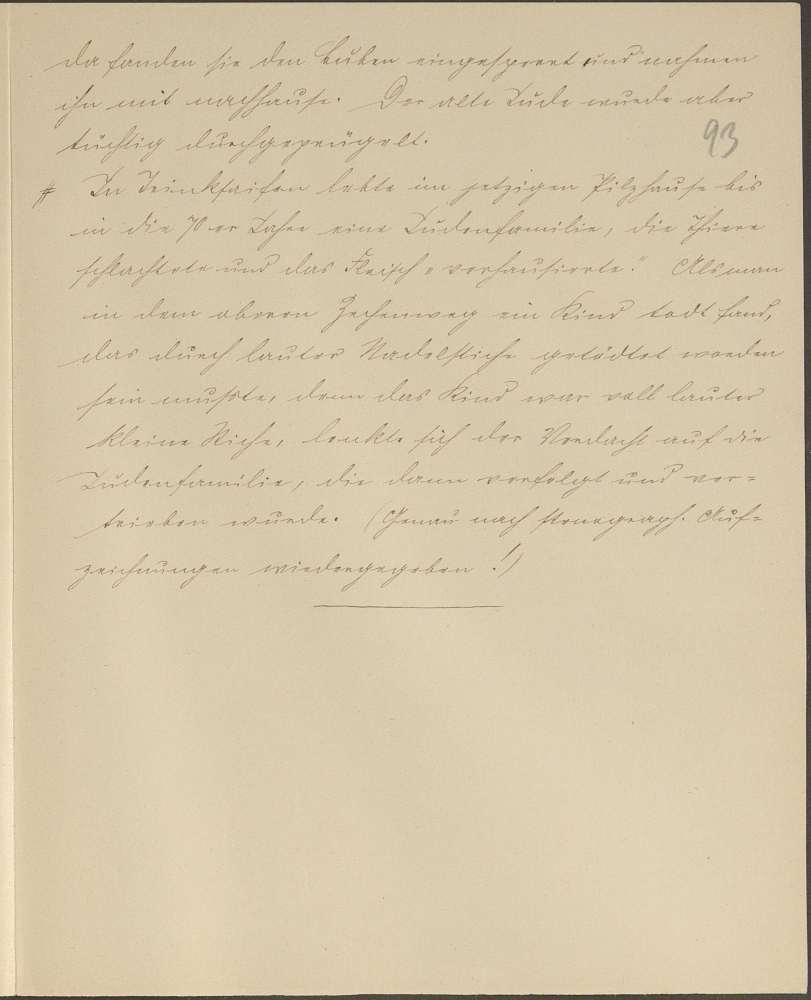 da fanden sie den Buben eingesperrt und nahmen
ihn mit nachhause. Der alte Jude wurde aber
tüchtig durchgeprügelt.
93
# In Trinksaifen lebte im jetzigen Pilzhause bis
in die 70er Jahre eine Judenfamilie, die Thiere
schlachtete und das Fleisch „verhausierte.“ Als man
in dem oberen Zechenweg ein Kind todt fand,
das durch lauter Nadelstiche getödtet worden
sein musste, denn das Kind war voll lauter
kleine Stiche, lenkte sich der Verdacht auf die
Judenfamilie, die dann verfolgt und ver=
trieben wurde. (Genau nach stenograph. Auf=
zeichnungen wiedergegeben!)